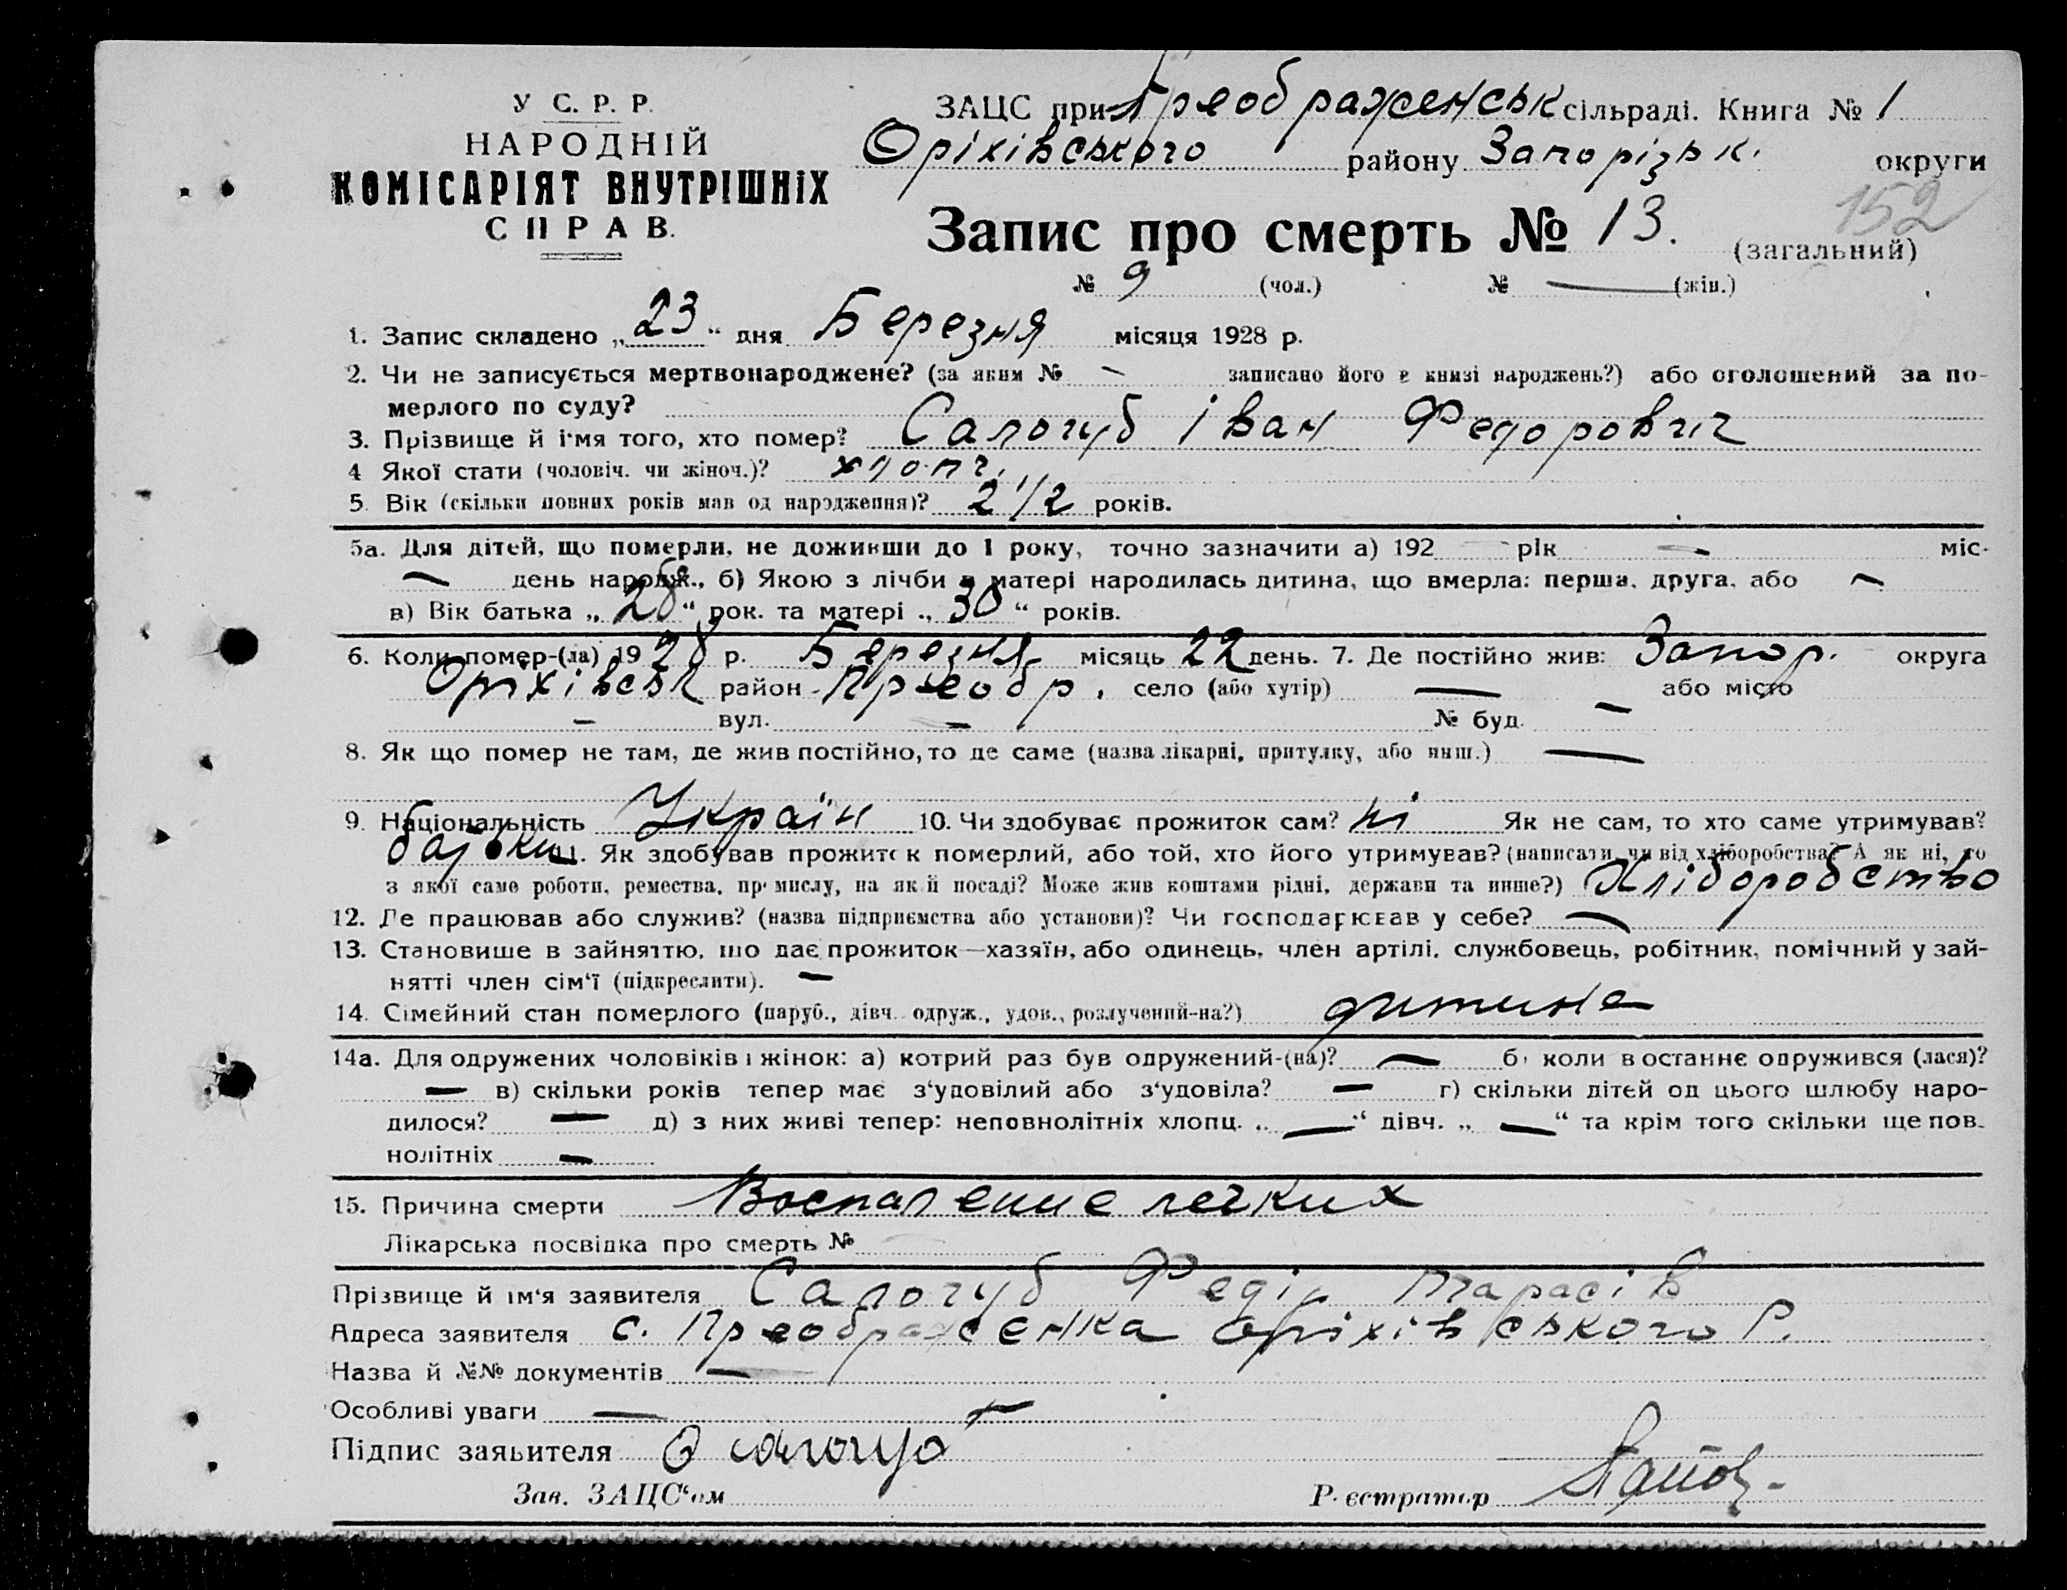 У С. Р. Р.
НАРОДНІЙ
КОМІСАРІЯТ ВНУТРІШНІХ
СПРАВ.
ЗАЦС при Преображенськ сільраді. Книга № 1
Оріхівського району Запорізьк. округи
152
Запис про смерть № 13. (загальний)
№ 9 (чол.) № — (жін.)
1. Запис складено „23“ дня Березня місяця 1928 р.
2. Чи не записується мертвонароджене? (за яким № — записано його в книзі народжень?) або оголошений за по-
мерлого по суду?
3. Прізвище й ім'я того, хто помер? Салогуб Іван Федорович
4 Якої стати (чоловіч. чи жіноч.)? хлопч.
5. Вік (скільки повних років мав од народження)? 2 1/2 років.
5а. Для дітей, що померли, не доживши до 1 року, точно зазначити а) 192 — рік — міс.
— день народж., б) Якою з лічби у матері народилась дитина, що вмерла: перша, друга, або —
в) Вік батька „28“ рок. та матері „30“ років.
6. Коли помер-(ла) 1928 р. Березня місяць 22 день. 7. Де постійно жив: Запор. округа
Оріхівськ район Преобр. село (або хутір) — або місто
— вул. — № буд. —
8. Як що помер не там, де жив постійно, то де саме (назва лікарні, притулку, або инш.) —
9. Національність Україн 10. Чи здобуває прожиток сам? ні Як не сам, то хто саме утримував?
батьки 11. Як здобував прожиток померлий, або той, хто його утримував? (написати, чи від хліборобства? А як ні, то
з якої саме роботи, ремества, промислу, на якій посаді? Може жив коштами рідні, держави та инше?) Хліборобство
12. Де працював або служив? (назва підприємства або установи)? Чи господарював у себе? —
13. Становище в зайняттю, що дає прожиток—хазяїн, або одинець, член артілі, службовець, робітник, помічний у зай-
нятті член сім'ї (підкреслити). —
14. Сімейний стан померлого (паруб., дівч. одруж., удов., розлучений-на?) дитина
14а. Для одружених чоловіків і жінок: а) котрий раз був одружений-(на)? — б) коли востаннє одружився (лася)?
— в) скільки років тепер має з'удовілий або з'удовіла? — г) скільки дітей од цього шлюбу наро-
дилося? — д) з них живі тепер: неповнолітніх хлопц. „—“ дівч. „—“ та крім того скільки ще пов-
нолітніх —
15. Причина смерти Воспаление легких
Лікарська посвідка про смерть №
Прізвище й ім'я заявителя Салогуб Федір Тарасів
Адреса заявителя с. Преображенка Оріхівського Р.
Назва й №№ документів —
Особливі уваги —
Підпис заявителя
Зав. ЗАЦС'ом Реєстратор